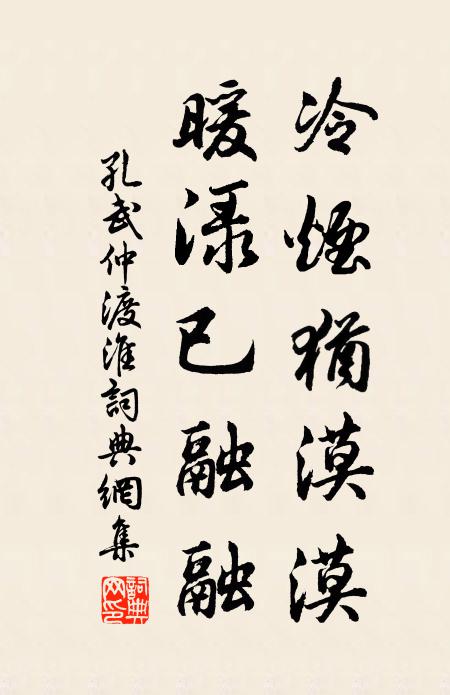 冷煙猶漠漠
暖渌已融融
孔武仲渡淮詞典網集
詞典网印